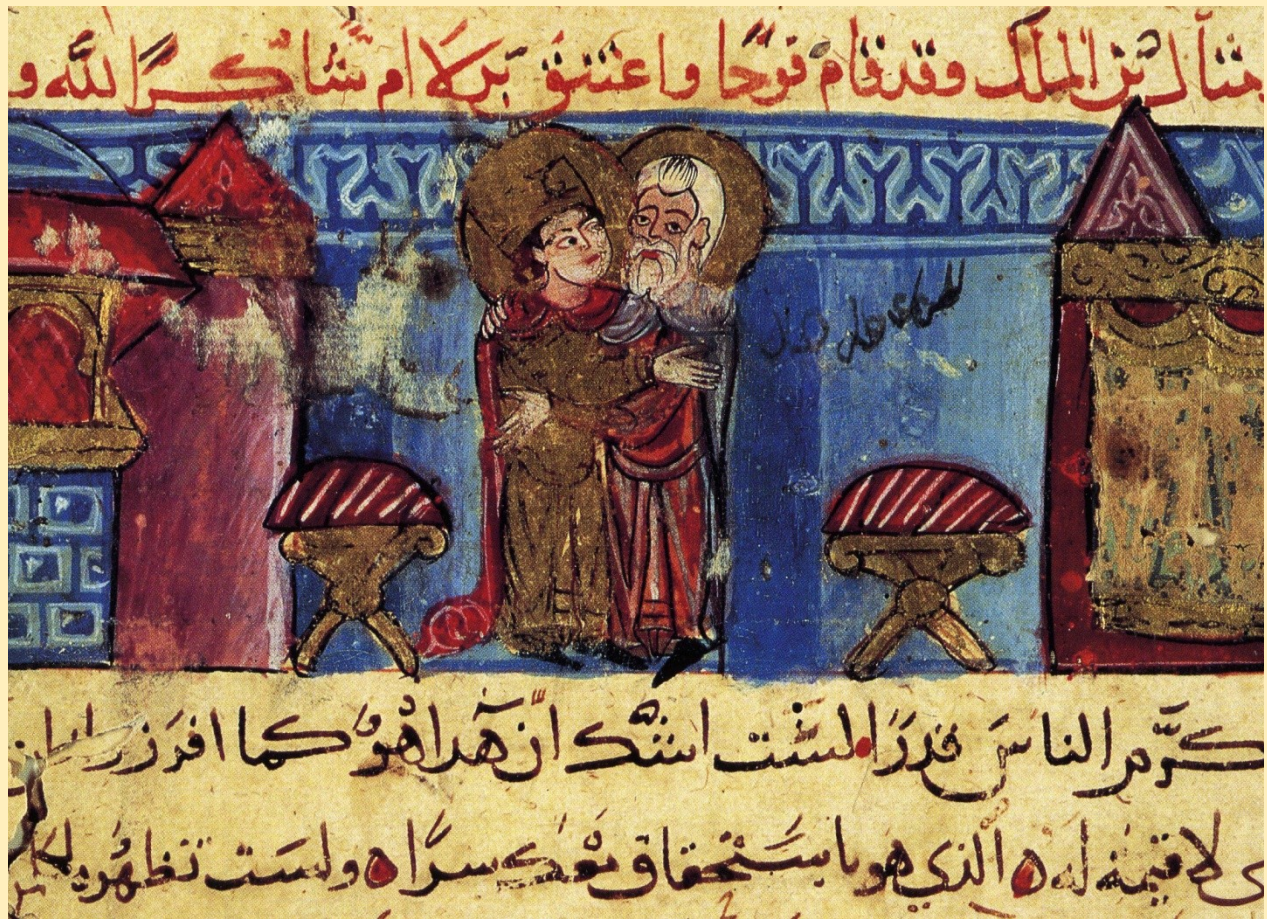 مثال ابن الملك وقد قام فرحًا واعتنق برلاام شاكرًا لله و
كرَّم الناسَ قدرًا لست اشك انّ هذا هُو كما افرز
لا قيمه له ه الذي هو باستحقاق معك سرًا ه ولست تظهره لكل